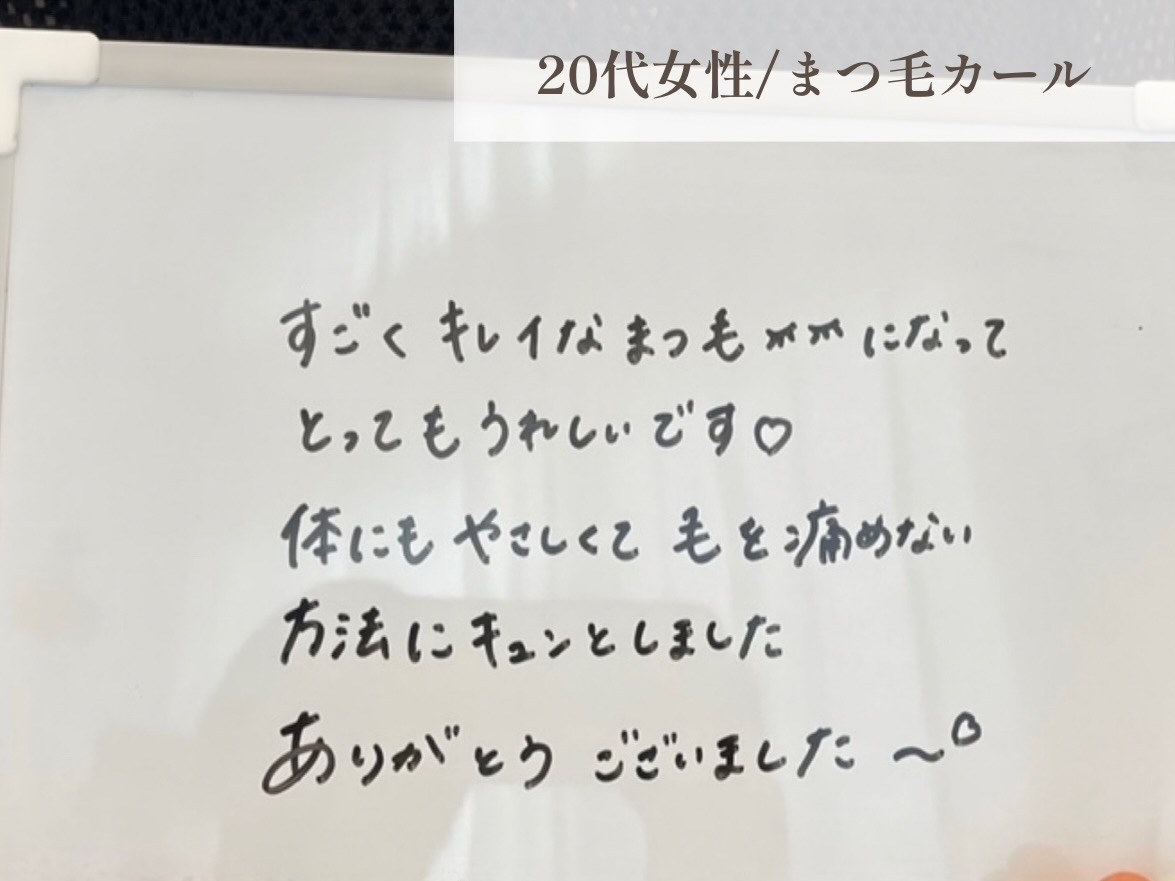 20代女性/まつ毛カール
すごく キレイな まつ毛 になって
とっても うれしいです♡
体にも やさしくて 毛を痛めない
方法に キュンとしました
ありがとう ございました 〜♡